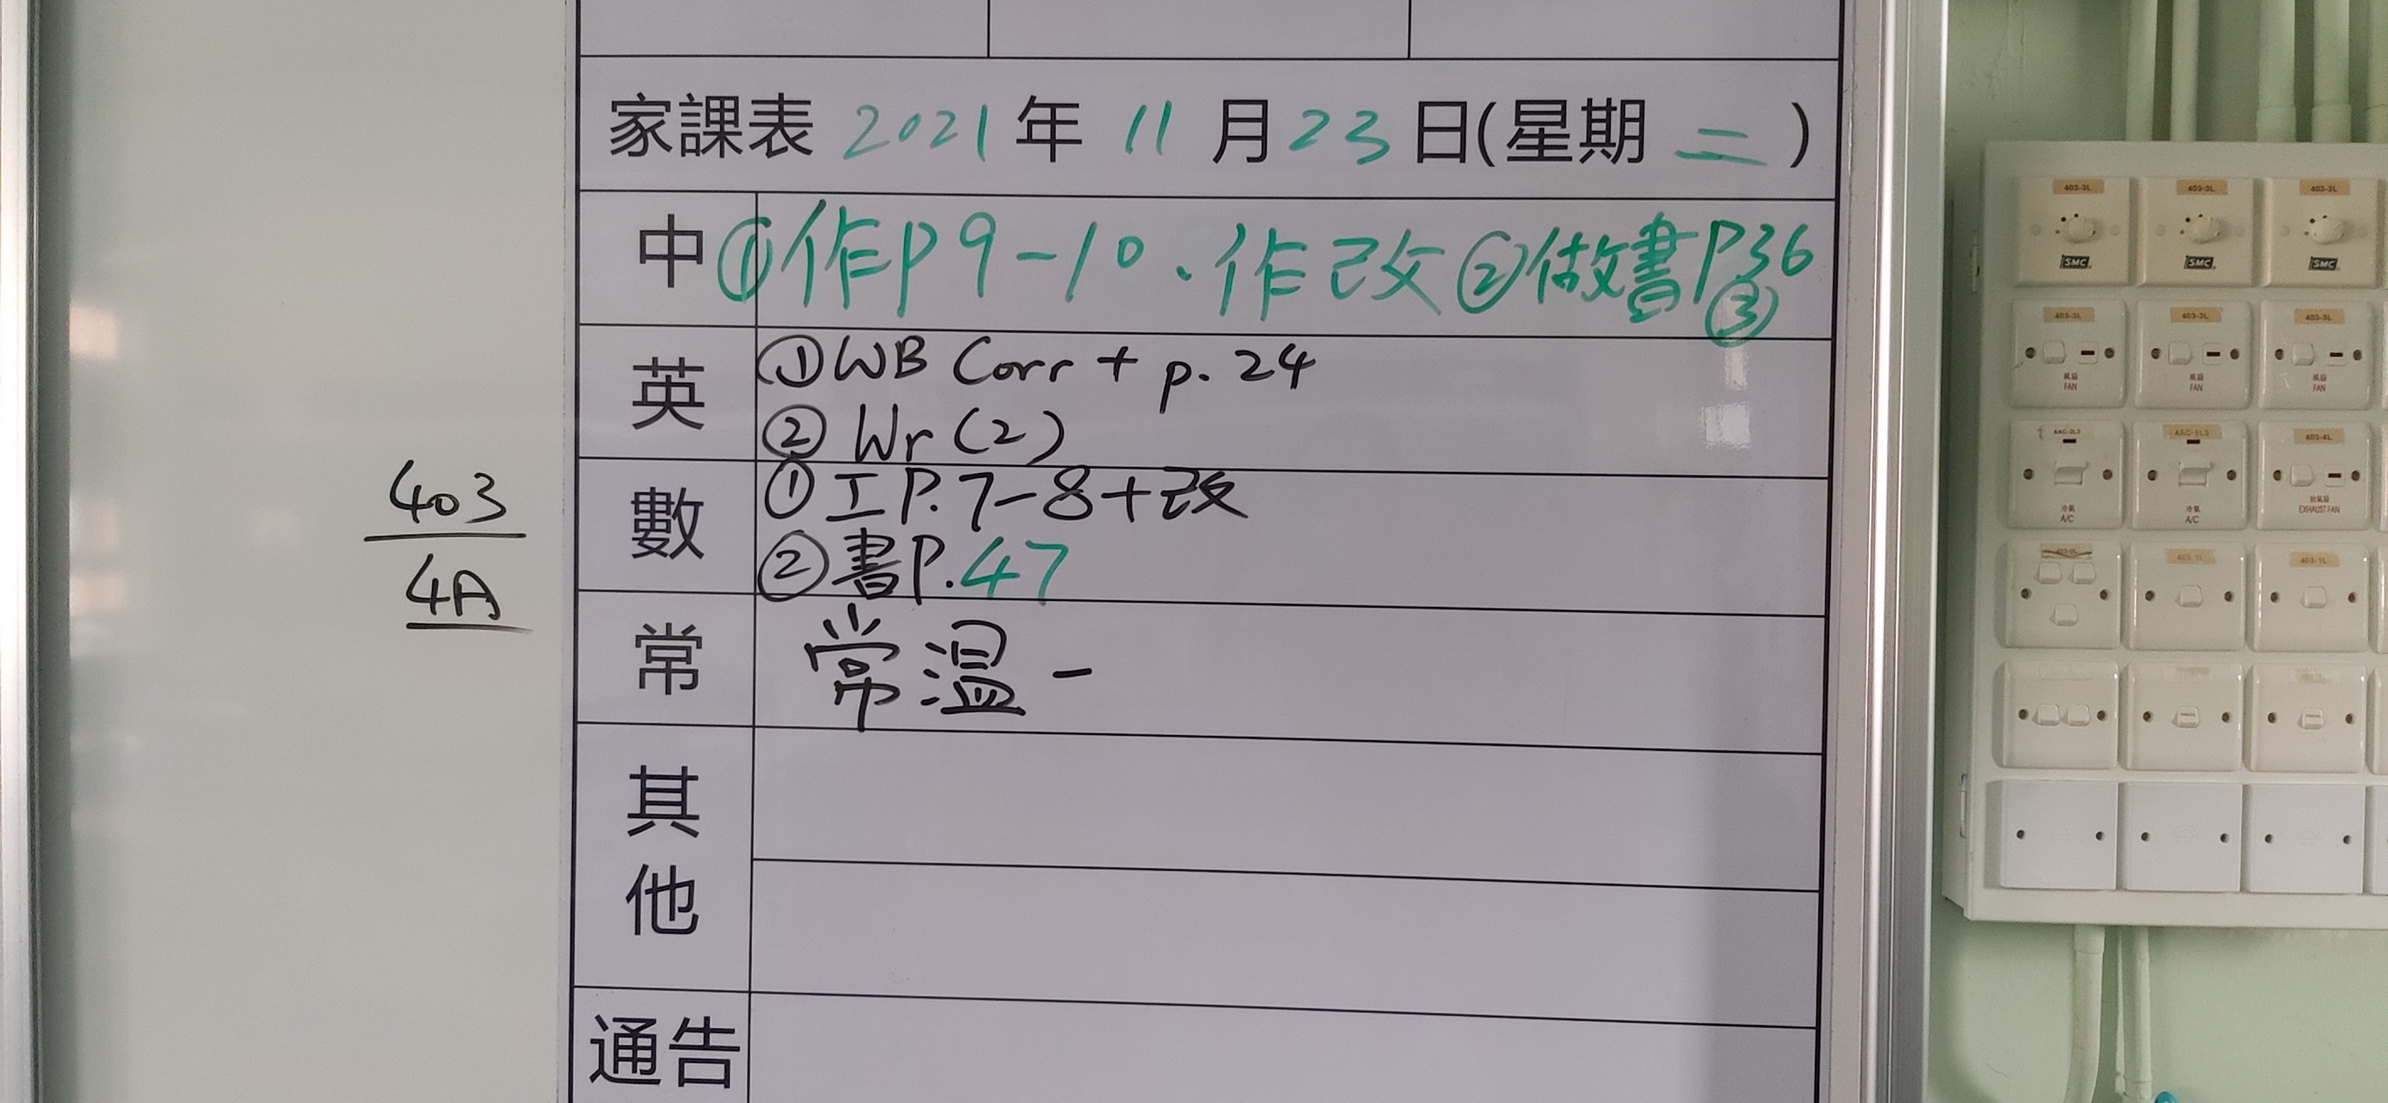 家課表 2021 年 11 月 23 日(星期 二 )
中 ①作P9-10、作改 ②做書P36
③
英 ①WB Corr + p. 24
② Wr (2)
數 ①工P.7-8+改
②書P.47
常 常溫一
其他
通告
403
4A
403-3L 403-3L 403-3L
SMC SMC SMC
403-3L 403-3L 403-3L
風扇 風扇 風扇
FAN FAN FAN
4AC-1L3 403-4L
冷氣 冷氣 抽氣扇
A/C A/C EXHAUST FAN
403-1L 403-1L